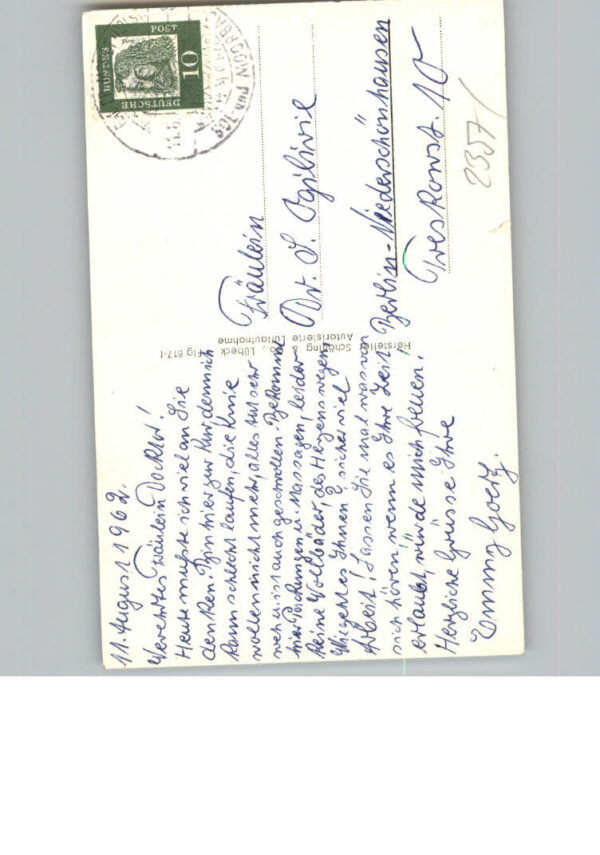 11. August 1962.
Verehrtes Fräulein Docktor!
Heute mußte ich viel an Sie
denken. Bin hier zur Kur denn ich
kann schlecht laufen, die Knie
wollen nicht mehr, alles tut sehr
weh u. ist auch geschwollen. Bekomme
hier Packungen u. Massagen, leider
keine Vollbäder, des Herzens wegen
Wie geht es Ihnen? sicher viel
Arbeit! Lassen Sie mal was von
sich hören, wenn es Ihre Zeit
erlaubt, würde mich freuen!
Herzliche Grüsse Ihre
Emmy Goerz.
Hersteller
Schöning & Co., Lübeck
Autorisierte Luftaufnahme
Fräulein
Dr. L. Ogilivie
Berlin-Niederschönhausen
Treskowst. 10
2357/
DEUTSCHE
BUNDES
POST
10